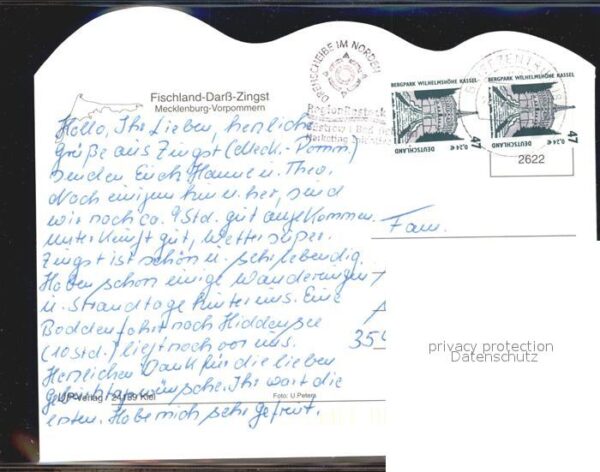 Fischland-Darß-Zingst
Mecklenburg-Vorpommern
Hallo, Ihr Lieben, herzliche
Grüße aus Zingst (Meck.-Pomm)
senden Euch Hanne u. Theo.
Nach einigem hin u. her, sind
wir nach ca. 9 Std. gut angekommen.
Unterkunft gut, Wetter super.
Zingst ist schön u. sehr lebendig.
Haben schon einige Wanderungen
u. Strandtage hinter uns. Eine
Boddenfahrt nach Hiddensee
(10 Std.) liegt noch vor uns.
Herzlichen Dank für die lieben
Geburtstagswünsche. Ihr wart die
ersten. Habe mich sehr gefreut.
Verlag 24159 Kiel
Foto: U. Peters
DREHSCHEIBE IM NORDEN
Region Rostock
BERGPARK WILHELMSHÖHE KASSEL
DEUTSCHLAND
0,24 €
47
BERGPARK WILHELMSHÖHE KASSEL
DEUTSCHLAND
0,24 €
47
BRIEFZENTRUM
2622
Fam.
privacy protection
Datenschutz